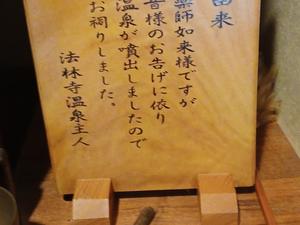 由来
薬師如来様ですが
皆様のお告げに依り
温泉が噴出しましたので
お祠りしました。
法林寺温泉主人